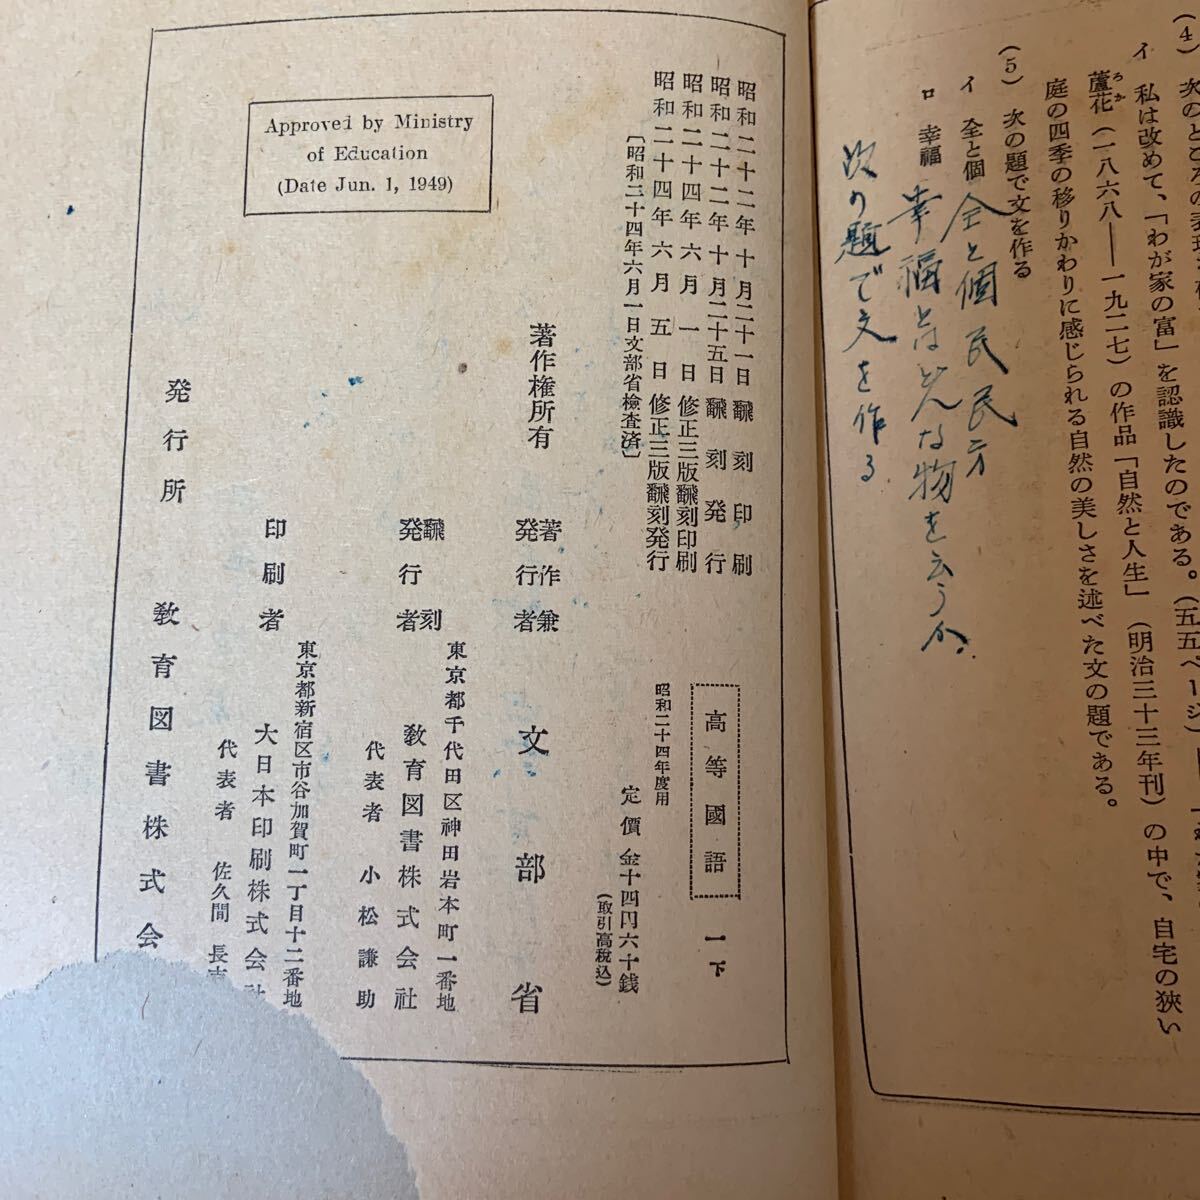 (4)
イ 私は改めて、「わが家の富」を認識したのである。(五五ページ)
蘆花(一八六八——一九二七)の作品「自然と人生」(明治三十三年刊)の中で、自宅の狭い
庭の四季の移りかわりに感じられる自然の美しさを述べた文の題である。
(5) 次の題で文を作る
イ 全と個
全と個
ロ 幸福
幸福とはどんな物を云うか。
次の題で文を作る
高等國語 一下
昭和二十四年度用
定價 金十四円六十銭
(取引高税込)
昭和二十二年十月二十一日 飜刻印刷
昭和二十二年十月二十五日 飜刻発行
昭和二十四年六月一日 修正三版飜刻印刷
昭和二十四年六月五日 修正三版飜刻発行
〔昭和二十四年六月一日文部省検査済〕
著作権所有
著作兼
発行者 文部省
東京都千代田区神田岩本町一番地
飜刻
発行者 教育図書株式会社
代表者 小松謙助
東京都新宿区市谷加賀町一丁目十二番地
印刷者 大日本印刷株式会社
代表者 佐久間長
発行所 教育図書株式会
Approved by Ministry
of Education
(Date Jun. 1, 1949)